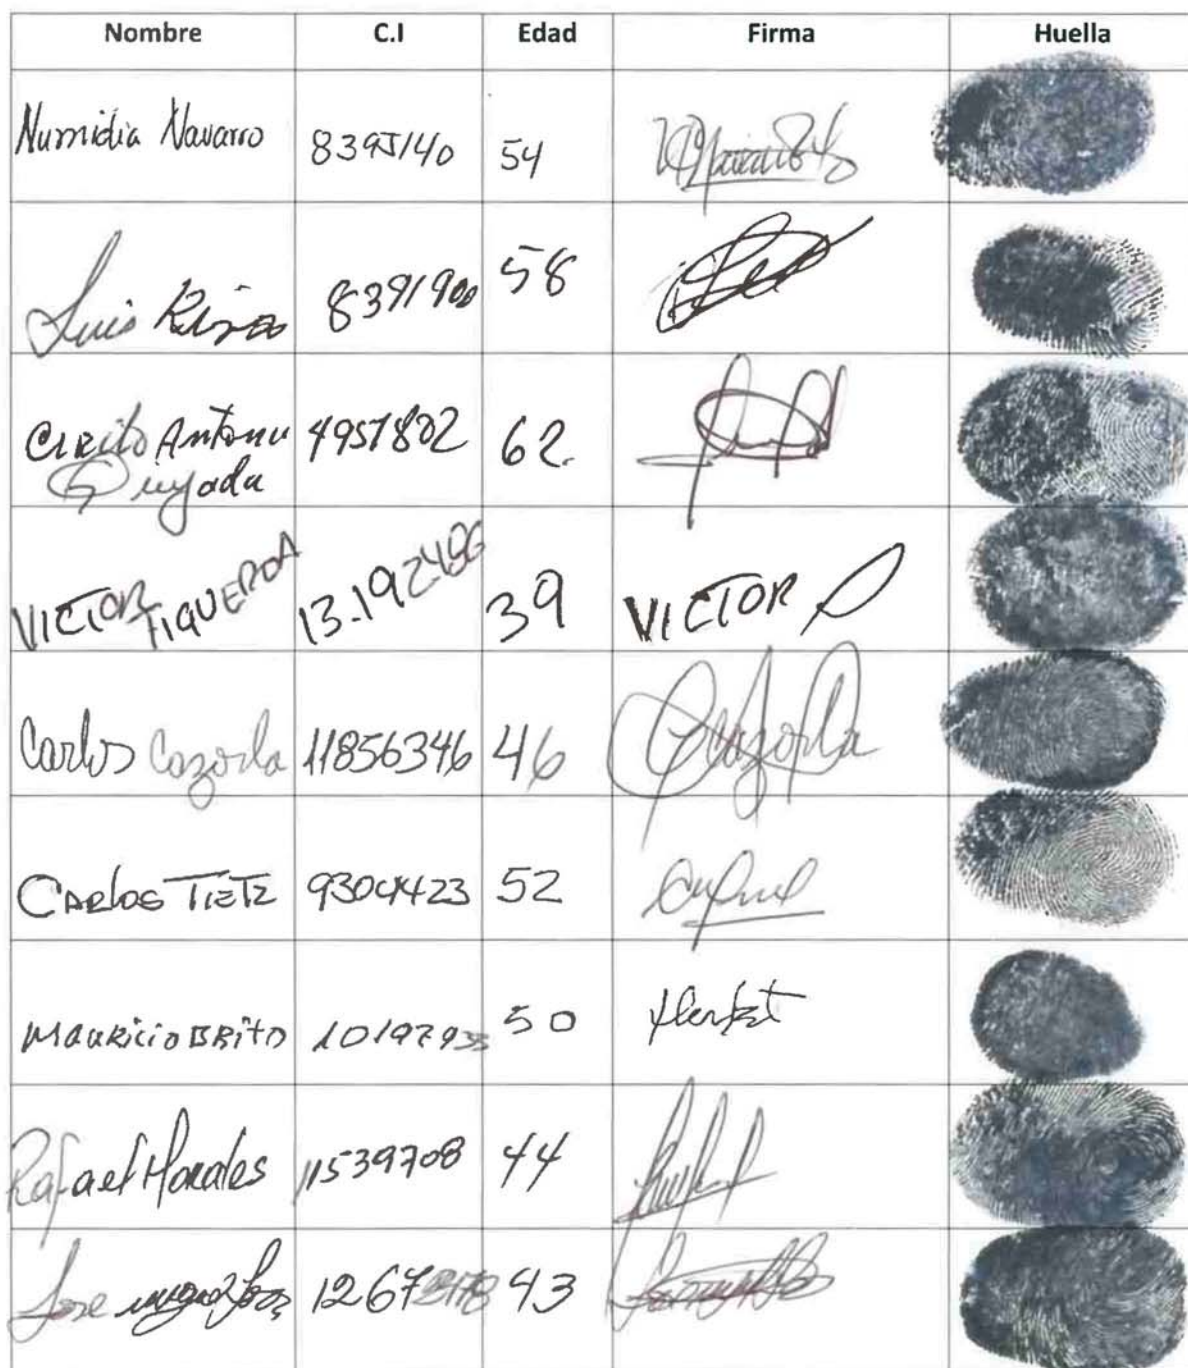 Nombre C.I Edad Firma Huella
Numidia Navarro 8395140 54
Luis 8391900 58
Cirilo Antonio 4957802 62.
Quijada
VICTOR FIGUEROA 13.192486 39 VICTOR
Carlos Cazorla 11856346 46 Cazorla
CARlos TIETZ 9304423 52
MAURICIO BRITO 50
Rafael Morales 11539708 44
Jose 43